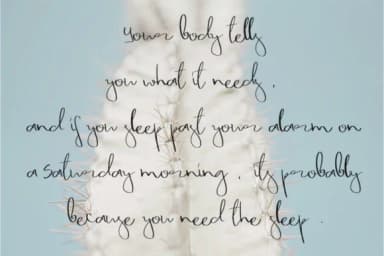 your body tells
you what it needs,
and if you sleep past your alarm on
a saturday morning, its probably
because you need the sleep.